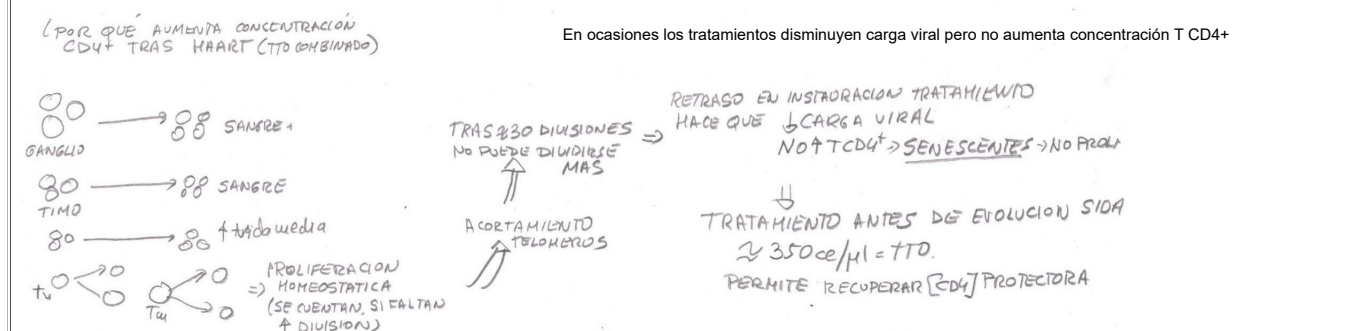 ¿POR QUÉ AUMENTA CONCENTRACIÓN
CD4+ TRAS HAART (TTO COMBINADO)
En ocasiones los tratamientos disminuyen carga viral pero no aumenta concentración T CD4+
GANGLIO → SANGRE
TIMO → SANGRE
↑ vida media
Tv
Tm
⇒ PROLIFERACION
HOMEOSTATICA
(SE CUENTAN, SI FALTAN
↑ DIVISION)
ACORTAMIENTO
TELOMEROS
TRAS ≈30 DIVISIONES ⇒
NO PUEDE DIVIDIRSE
MAS
RETRASO EN INSTAURACION TRATAMIENTO
HACE QUE ↓CARGA VIRAL
NO↑TCD4+ → SENESCENTES → NO PROLI
⇓
TRATAMIENTO ANTES DE EVOLUCION SIDA
≈ 350 ce/µl = TTO.
PERMITE RECUPERAR [CD4] PROTECTORA